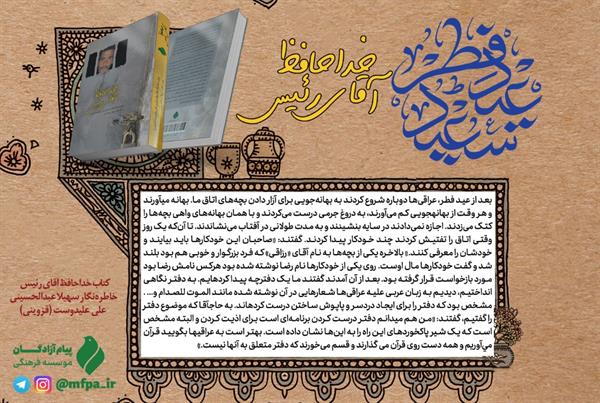 عید سعید فطر
خداحافظ
آقای رئیس
بعد از عید فطر، عراقی‌ها دوباره شروع کردند به بهانه‌جویی برای آزار دادن بچه‌های اتاق ما. بهانه میآورند
و هر وقت از بهانهجویی کم می‌آورند، به دروغ جرمی درست می‌کردند و با همان بهانه‌های واهی بچه‌ها را
کتک می‌زدند. اجازه نمی‌دادند در سایه بنشینند و به مدت طولانی در آفتاب می‌نشاندند. تا آن‌که یک روز
وقتی اتاق را تفتیش کردند چند خودکار پیدا کردند. گفتند: «صاحبان این خودکارها باید بیایند و
خودشان را معرفی کنند.» بالاخره یکی از بچه‌ها به نام آقای «رزاقی» که فرد بزرگوار و خوبی هم بود بلند
شد و گفت خودکارها مال اوست. روی یکی از خودکارها نام رضا نوشته شده بود هرکس نامش رضا بود
مورد بازخواست قرار گرفته بود. بعد از آن آمدند گفتند ما یک دفترچه پیدا کرده‌ایم. به دفتر نگاهی
انداختیم، دیدیم به زبان عربی علیه عراقی‌ها شعارهایی در آن نوشته شده مانند الموت للصدام و...
مشخص بود که دفتر را برای ایجاد دردسر و پاپوش ساختن درست کرده‌اند. به حاجآقا که موضوع دفتر
را گفتیم، گفتند: «من هم میدانم دفتر درست کردن برنامه‌ای است برای اذیت کردن و البته مشخص
است که یک شیر پاکخورده‌ای این راه را به این‌ها نشان داده است. بهتر است به عراقیها بگویید قرآن
می‌آوریم و همه دست روی قرآن می گذارند و قسم می‌خورند که دفتر متعلق به آنها نیست.»
کتاب خداحافظ آقای رئیس
خاطره‌نگار سهیلا عبدالحسینی
علی علیدوست (قزوینی)
پیام آزادگان
موسسه فرهنگی
@mfpa_ir